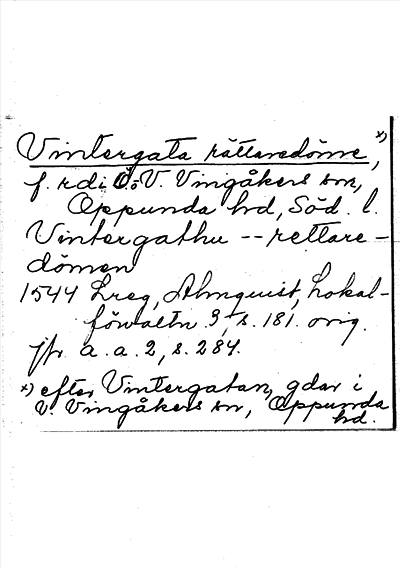 Vintergata rättaredöme, x)
f. rdi Ö o V. Vingåkers sn,
Oppunda hd, Söd. l.
Vintergathu -- rettare-
dömen
1544 Lreg, Almquist, Lokal-
förvaltn 3, s. 181. orig.
jfr a. a. 2, s. 284.
x) efter Vintergatan, gdar i
V. Vingåkers sn, Oppunda
hd.